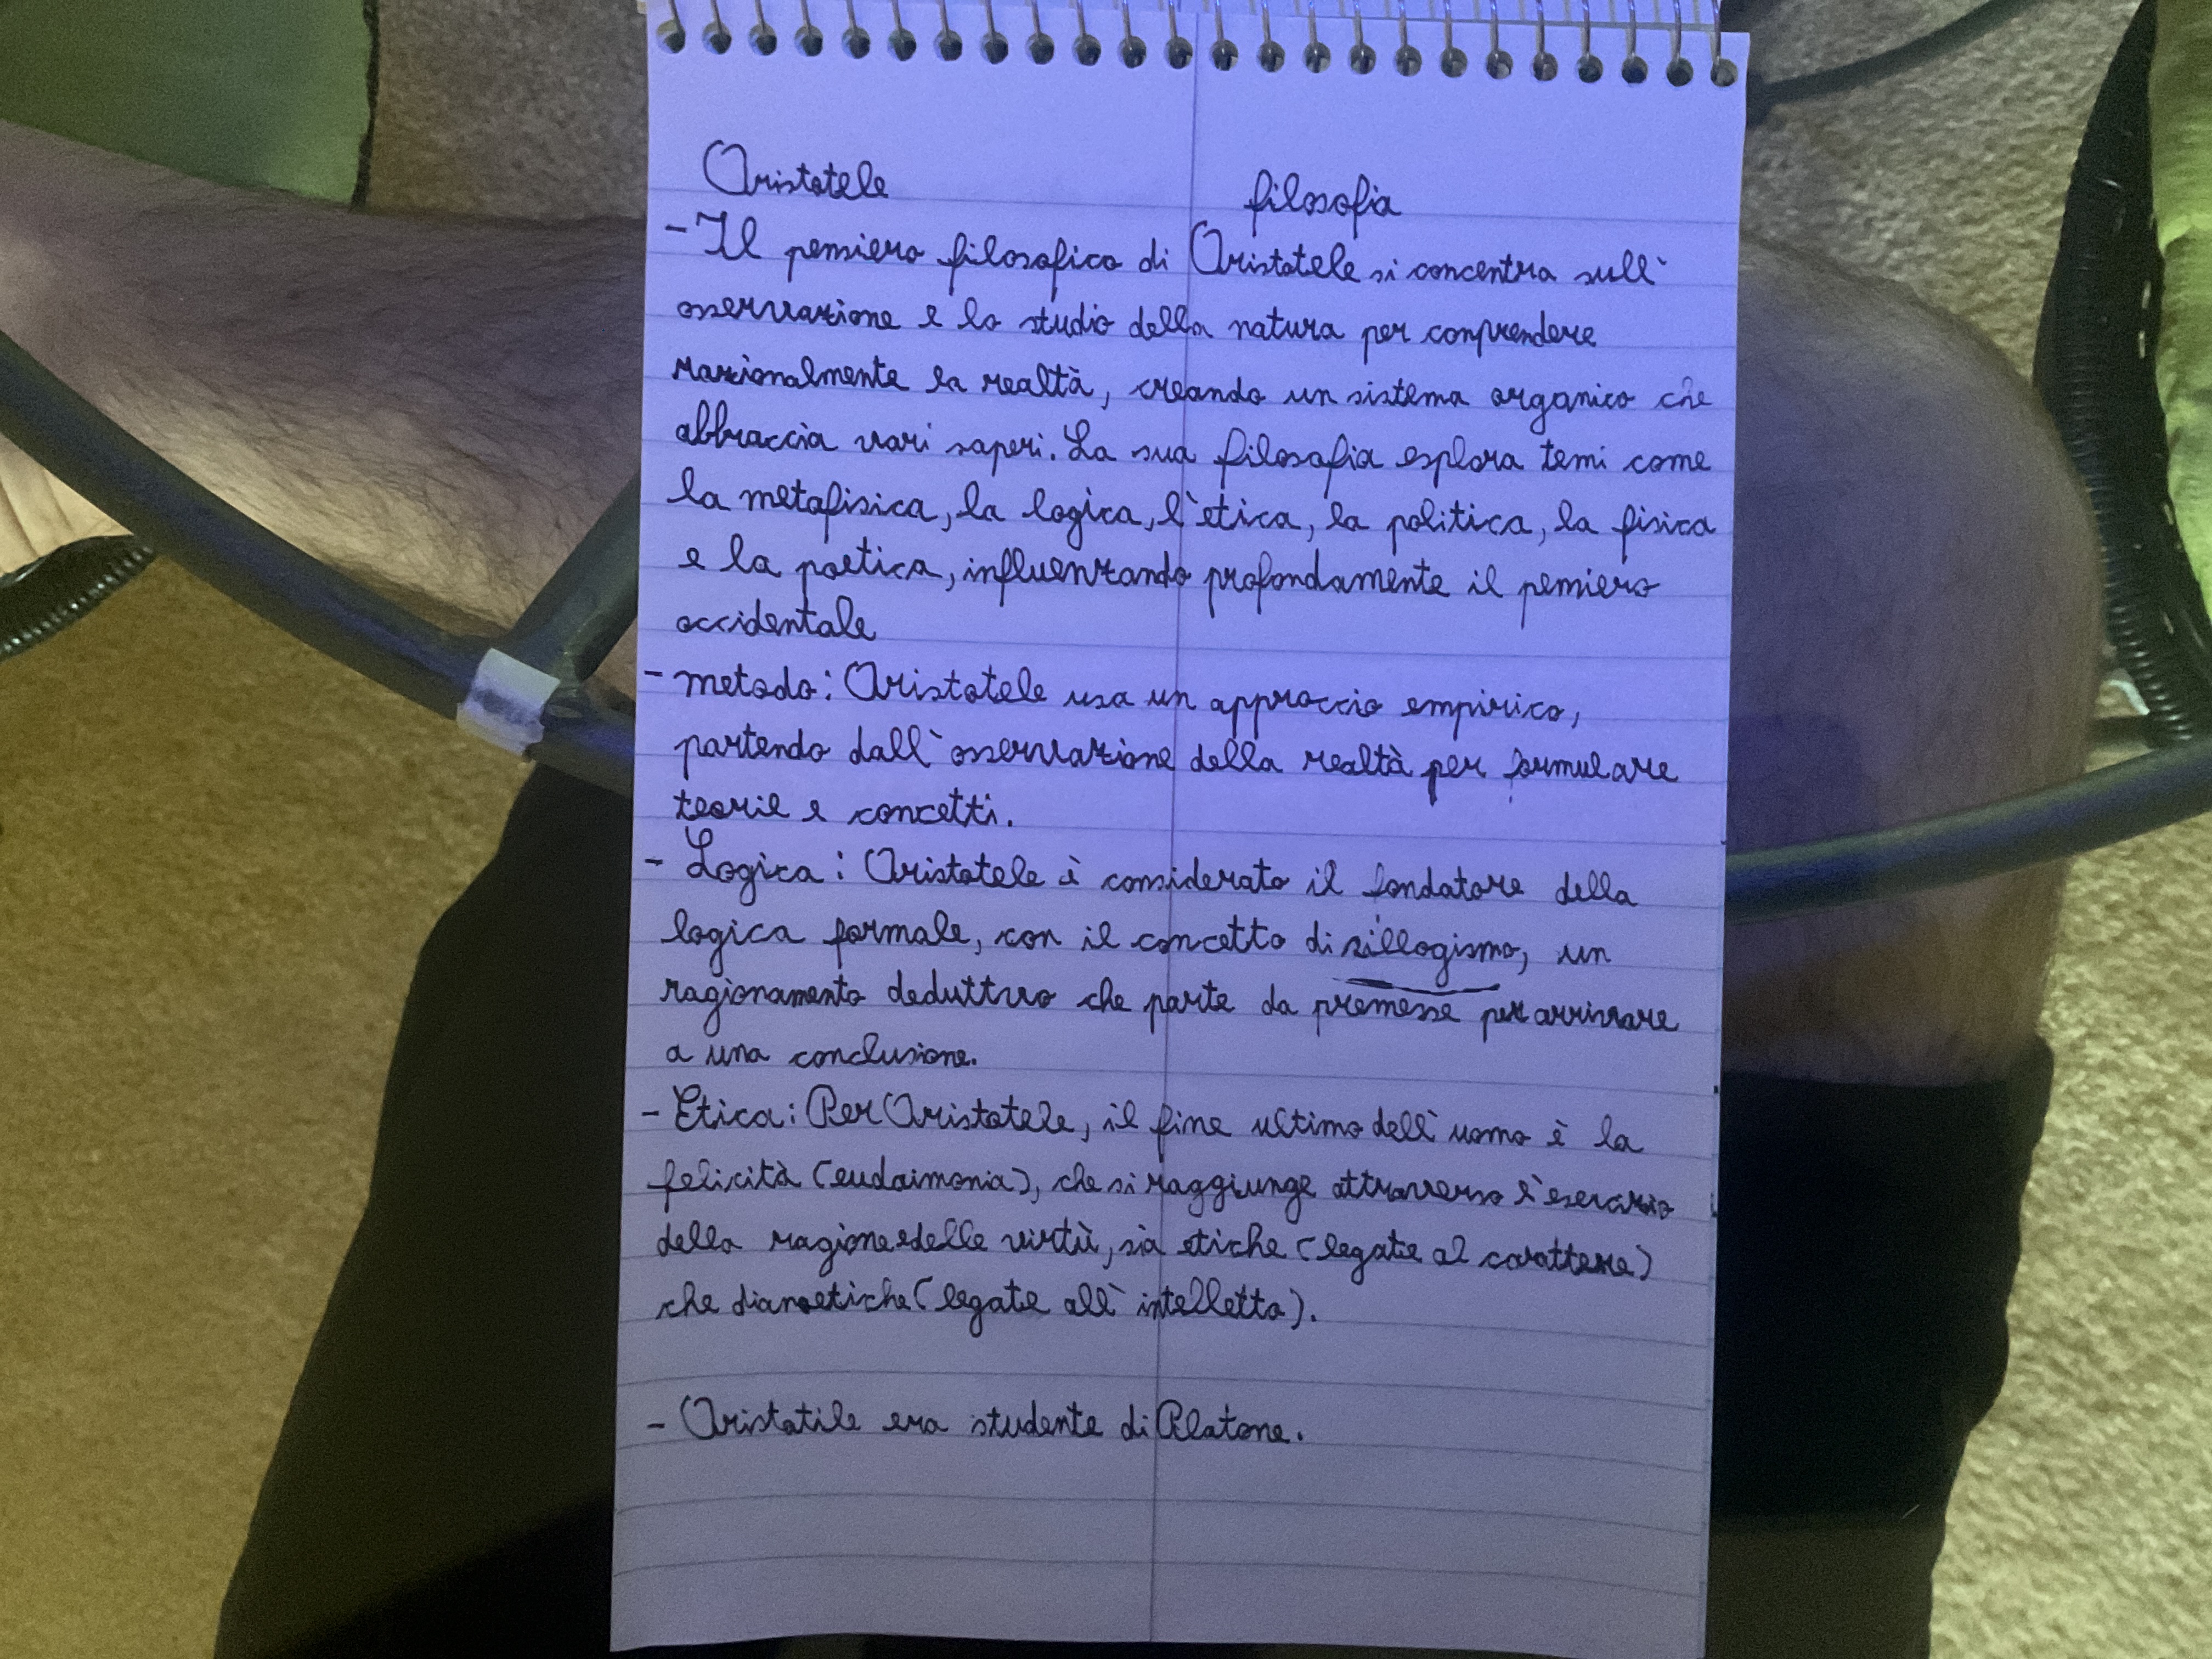 Aristotele filosofia
- Il pensiero filosofico di Aristotele si concentra sull'
osservazione e lo studio della natura per conprendere
razionalmente la realtà, creando un sistema organico che
abbraccia vari saperi. La sua filosofia esplora temi come
la metafisica, la logica, l'etica, la politica, la fisica
e la poetica, influenzando profondamente il pensiero
occidentale
- metodo: Aristotele usa un approccio empirico,
partendo dall'osservazione della realtà per formulare
teorie e concetti.
- Logica: Aristotele è considerato il fondatore della
logica formale, con il concetto di sillogismo, un
ragionamento deduttivo che parte da premesse per arrivare
a una conclusione.
- Etica: Per Aristotele, il fine ultimo dell'uomo è la
felicità (eudaimonia), che si raggiunge attraverso l'esercizio
della ragione e delle virtù, sia etiche (legate al carattere)
che dianoetiche (legate all'intelletto).
- Aristotile era studente di Platone.